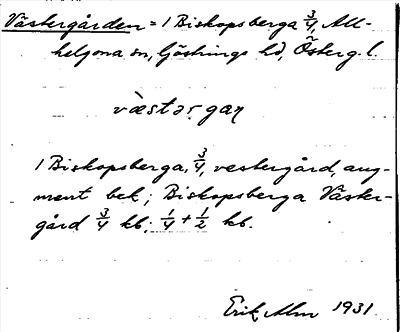 Västergården = 1 Biskopsberga 3/4, All-
helgona sn, Göstrings hd, Österg. l.
væstərgaɳ
1 Biskopsberga, 3/4, vestergård, aug-
ment bek; Biskopsberga Väster-
gård 3/4 kb; 1/4 + 1/2 kb.
Erik Alm 1931